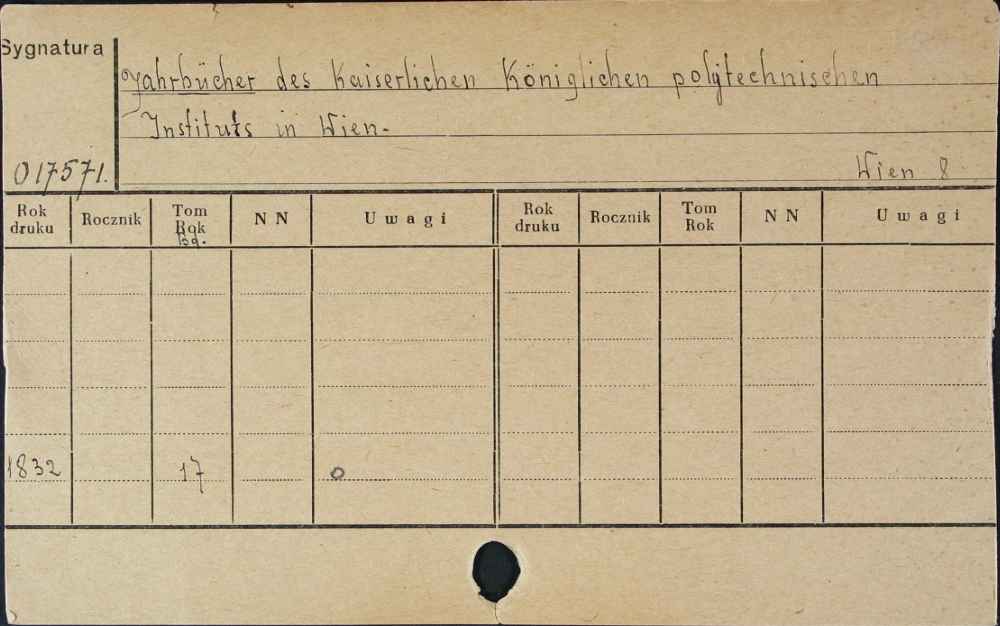 Sygnatura
Jahrbücher des Kaiserlichen Königlichen polytechnischen
Instituts in Wien.
017571.
Wien 8
Rok druku Rocznik Tom Rok Bd. N N Uwagi Rok druku Rocznik Tom Rok N N Uwagi
1832 17 0